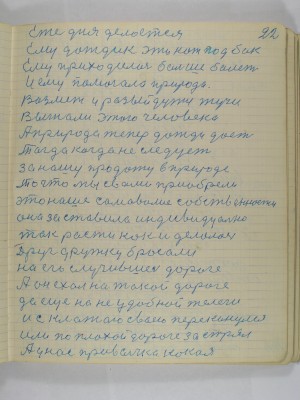 22
Еже дня делоется
Ему дождик это нож под бок
Ему приходилося больше болеть
И ему помогало природь.
Возмет и разыйдуть тучи
Выжнали этого человека
А природа тепер дождь дает
Тогда когда не следует
За нашу продоту в природе
То что мы с вами приобрели
это наше самоволие собственность
она заставила индивидуално
так расти как и делалося
Друг дружку бросали
на его случившес дороге
А он ехал на такой дороге
да еще на не удобной телеги
и с клажею своею перекинулся
или по плохой дороге застрял
А у нас привычка какая